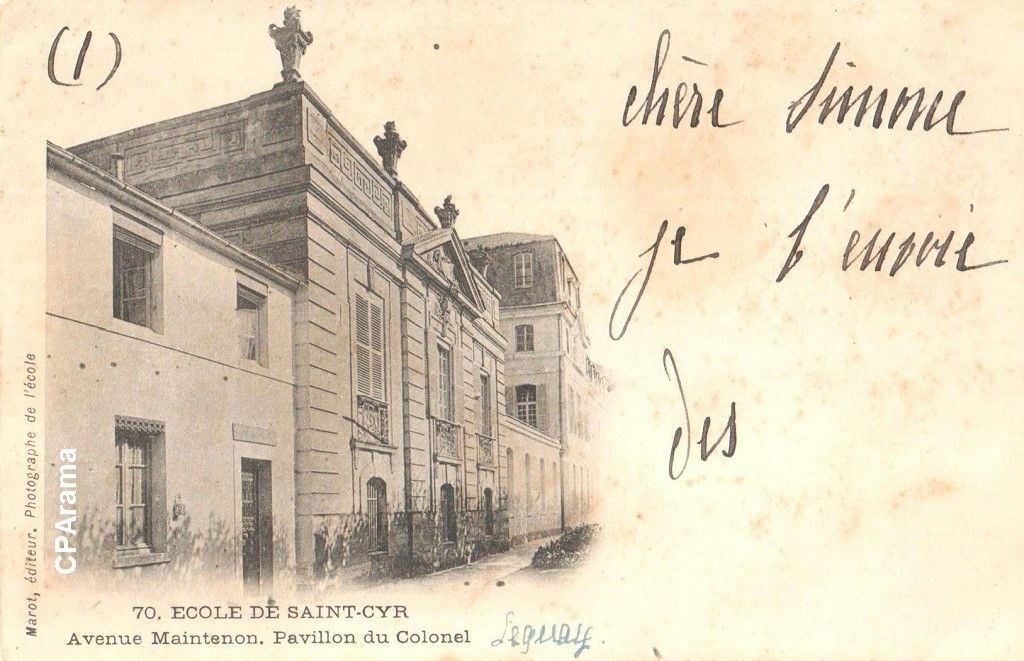 (1)
chère Simone
je t'envoie
des
Marot, éditeur. Photographe de l'école
CPArama
70. ECOLE DE SAINT-CYR
Avenue Maintenon. Pavillon du Colonel